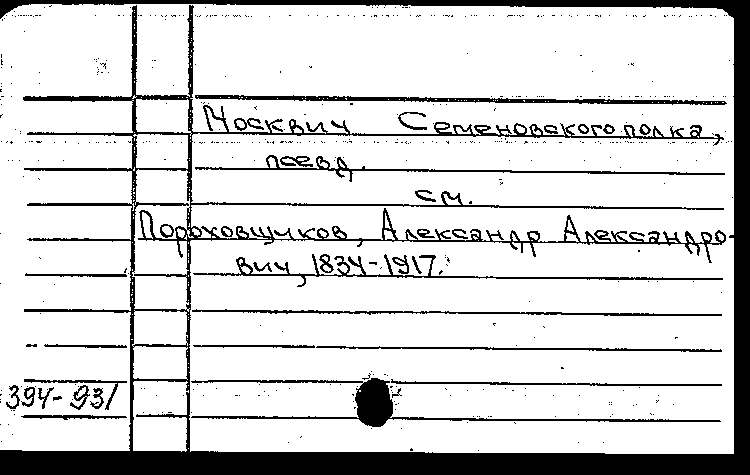 Москвич Семеновского полка,
псевд.
см.
Пороховщиков, Александр Александро-
вич, 1834-1917.
394-93/